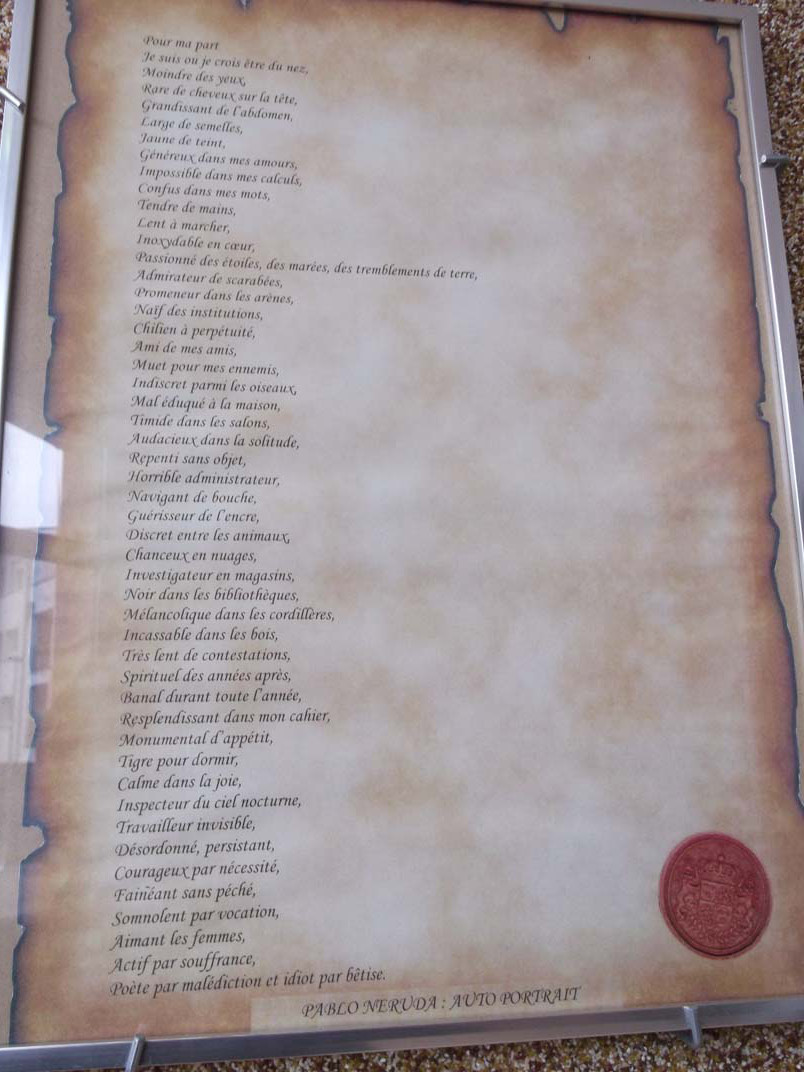 Pour ma part
Je suis ou je crois être du nez,
Moindre des yeux,
Rare de cheveux sur la tête,
Grandissant de l'abdomen,
Large de semelles,
Jaune de teint,
Généreux dans mes amours,
Impossible dans mes calculs,
Confus dans mes mots,
Tendre de mains,
Lent à marcher,
Inoxydable en cœur,
Passionné des étoiles, des marées, des tremblements de terre,
Admirateur de scarabées,
Promeneur dans les arènes,
Naïf des institutions,
Chilien à perpétuité,
Ami de mes amis,
Muet pour mes ennemis,
Indiscret parmi les oiseaux,
Mal éduqué à la maison,
Timide dans les salons,
Audacieux dans la solitude,
Repenti sans objet,
Horrible administrateur,
Navigant de bouche,
Guérisseur de l'encre,
Discret entre les animaux,
Chanceux en nuages,
Investigateur en magasins,
Noir dans les bibliothèques,
Mélancolique dans les cordillères,
Incassable dans les bois,
Très lent de contestations,
Spirituel des années après,
Banal durant toute l'année,
Resplendissant dans mon cahier,
Monumental d'appétit,
Tigre pour dormir,
Calme dans la joie,
Inspecteur du ciel nocturne,
Travailleur invisible,
Désordonné, persistant,
Courageux par nécessité,
Fainéant sans péché,
Somnolent par vocation,
Aimant les femmes,
Actif par souffrance,
Poète par malédiction et idiot par bêtise.
PABLO NERUDA : AUTO PORTRAIT